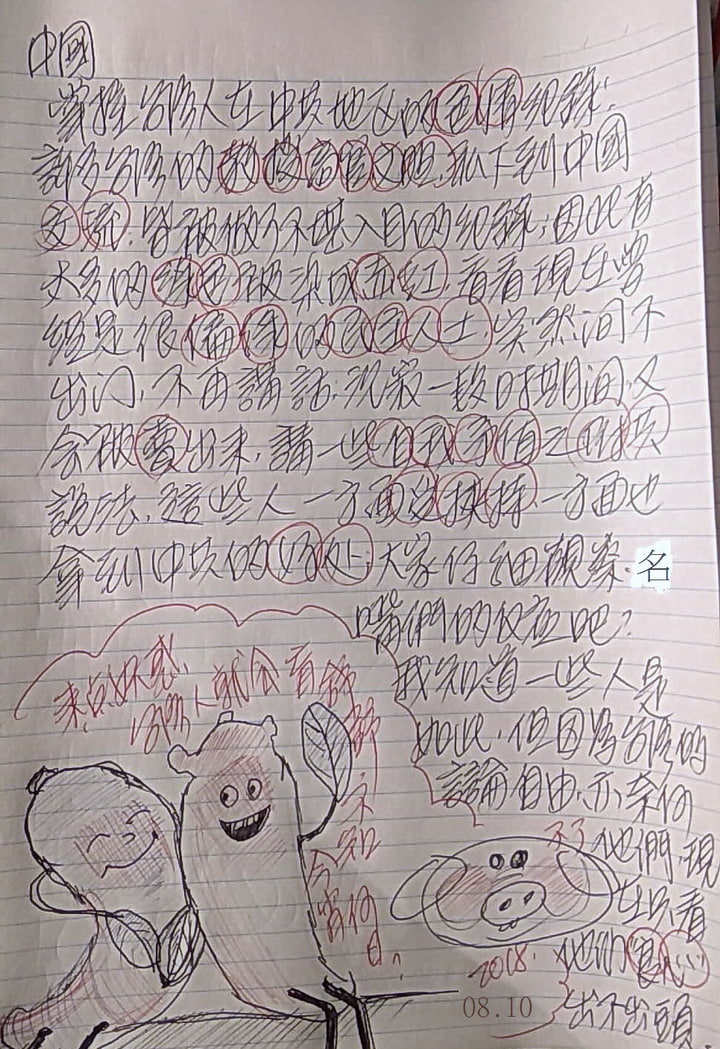 中國
掌握台灣人在中共地區的色情紀錄.
許多台灣的教授高官文胆,私下到中國
交流.皆被做了不堪入目的紀錄,因此有
大多的綠色被染成赤紅,看看現在曾
經是很偏綠的民主人士,突然间不
出门,不再講話,沉寂一段時期间,又
会被賣出來,講一些自我矛盾之附共
說法,這些人一方面送抉择,一方面也
拿到中共的好处,大家仔细觀察.名
嘴們的伎倆吧?
我知道一些人是
如此,但因為台灣的
論自由,亦奈何
不了他們,現
在只看
他们良心
出不出頭
来点妖惑,
台灣人就会看
不知
今宵何
日?
2018.
08.10